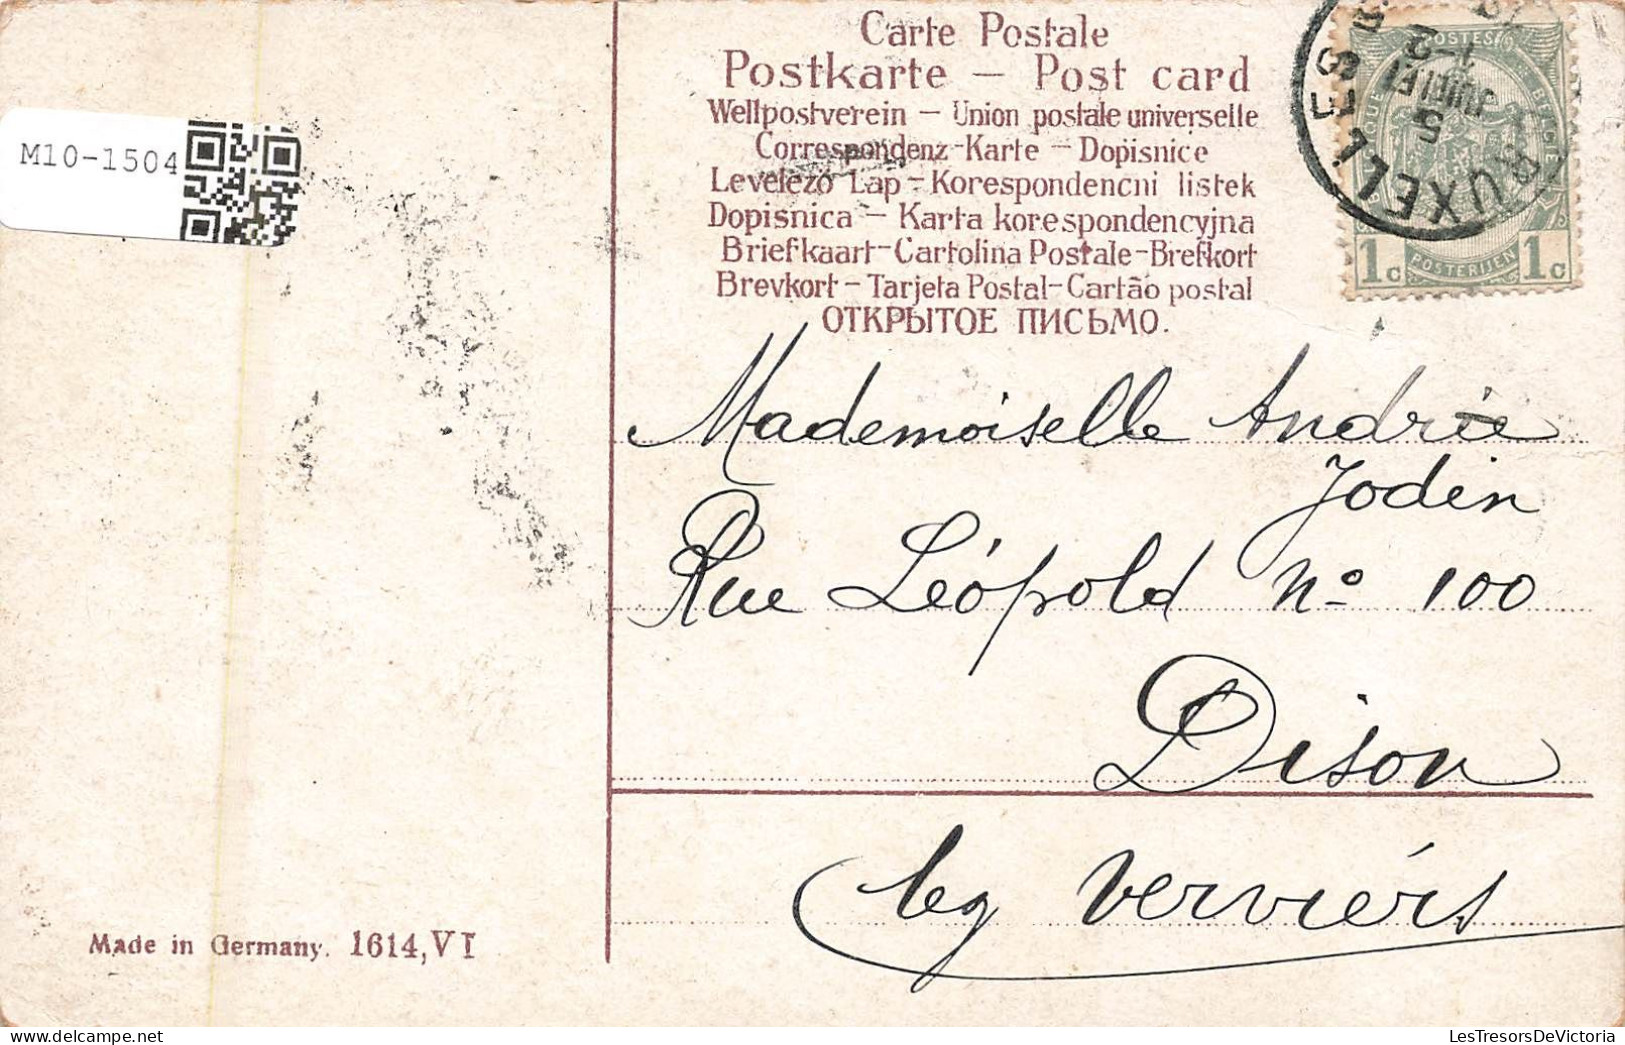 Carte Postale
Postkarte — Post card
Weltpostverein — Union postale universelle
Correspondenz-Karte — Dopisnice
Levelező Lap - Korespondencni listek
Dopisnica — Karta korespondencyjna
Briefkaart-Cartolina Postale-Brefkort
Brevkort - Tarjeta Postal-Cartão postal
ОТКРЫТОЕ ПИСЬМО.
M10-1504
BRUXELLES
5
JUILLET
1-2
POSTES
1c POSTERIJEN 1c
Mademoiselle Andrée
Jodin
Rue Léopold No 100
Dison
leg Verviérs
Made in Germany. 1614, VI
LesTresorsDeVictoria